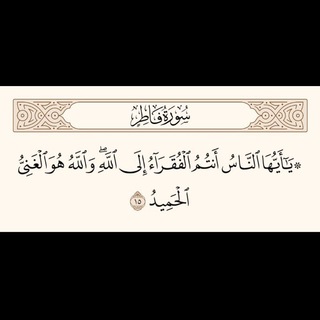 سُورَةُ فَاطِرٍ
۞ يَٰٓأَيُّهَا ٱلنَّاسُ أَنتُمُ ٱلْفُقَرَآءُ إِلَى ٱللَّهِۖ وَٱللَّهُ هُوَ ٱلْغَنِىُّ
ٱلْحَمِيدُ ١٥